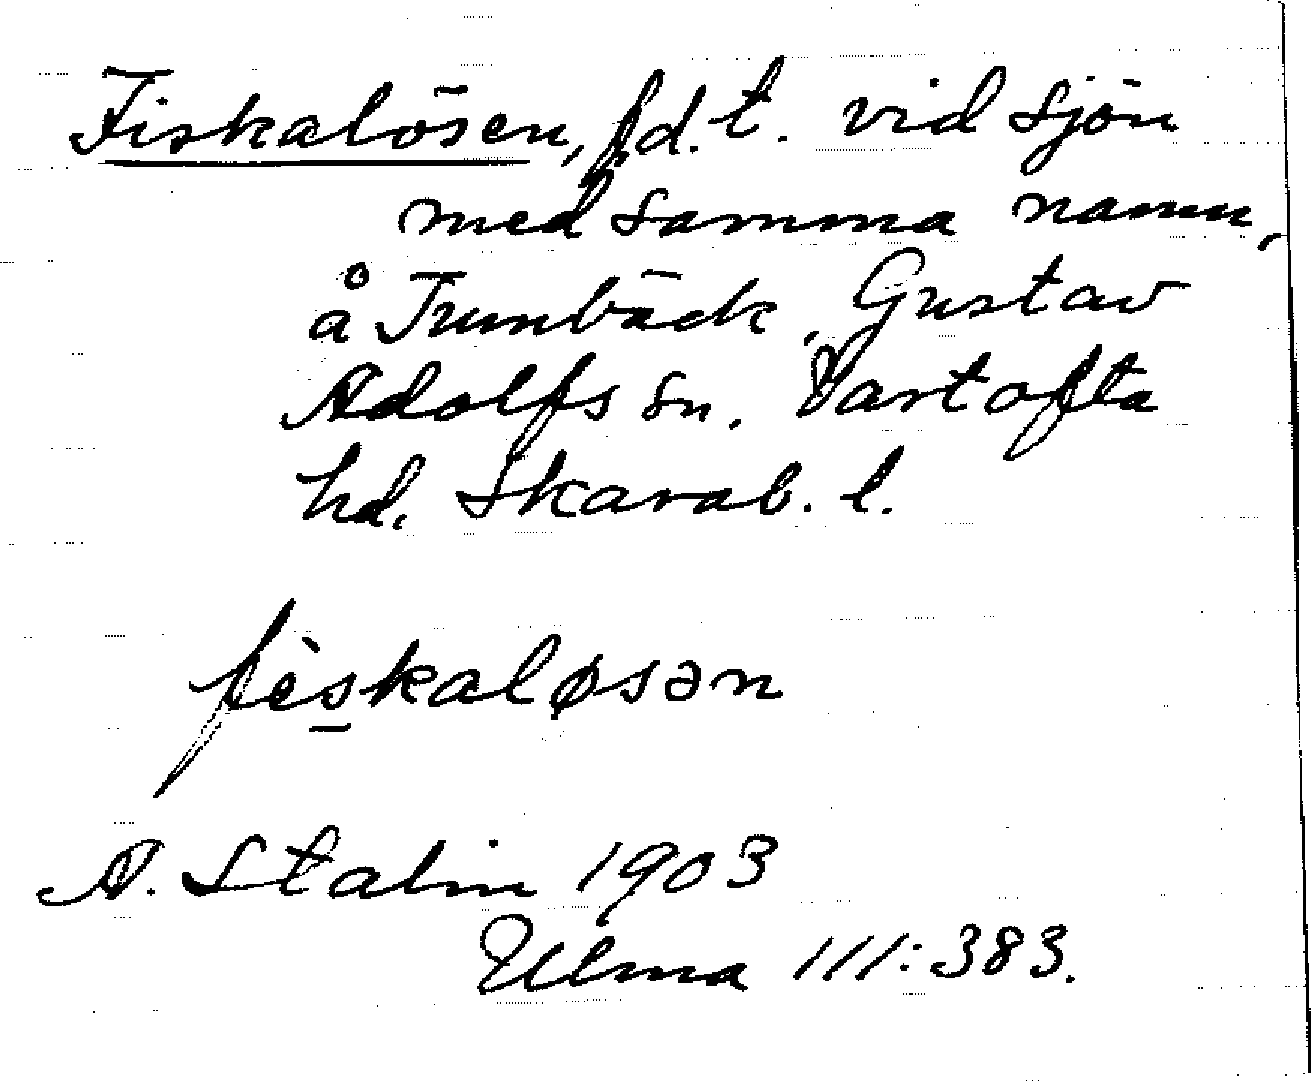 Fiskalösen, f.d. t. vid sjön
med samma namn,
å Tunnbäck, Gustav
Adolfs sn. Vartofta
hd. Skarab. l.
fèskaløsən
A. Stalin 1903
Ulma 111:383.